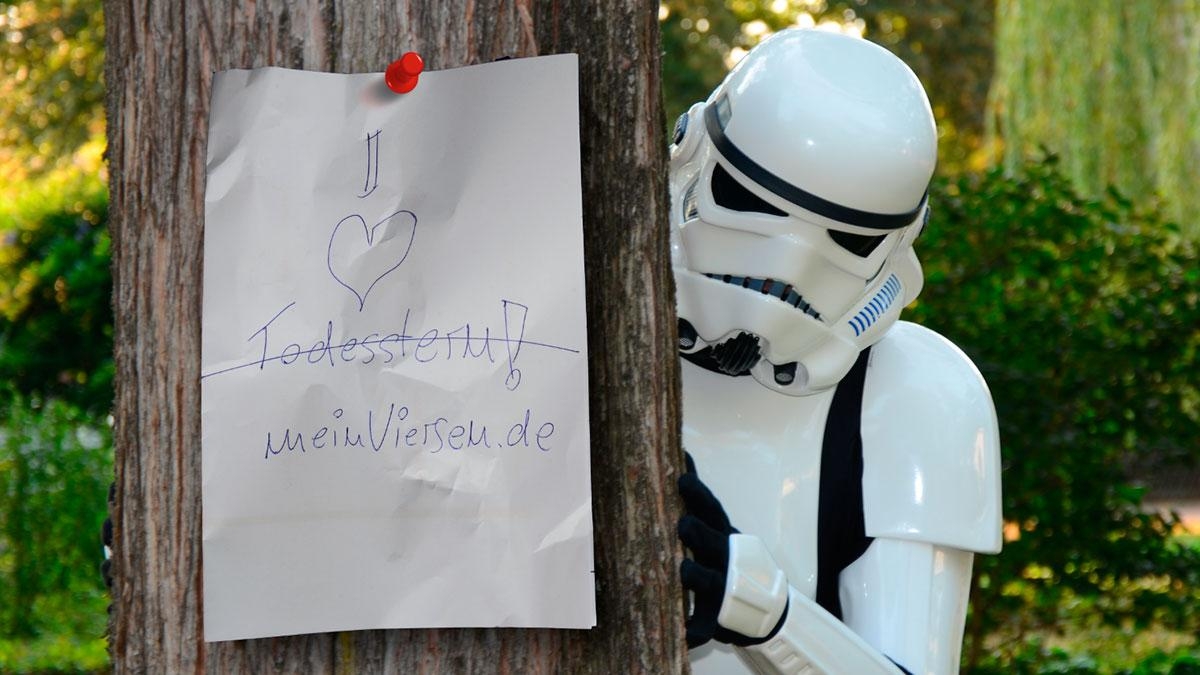 I
♥
Todesstern!
meinViersen.de